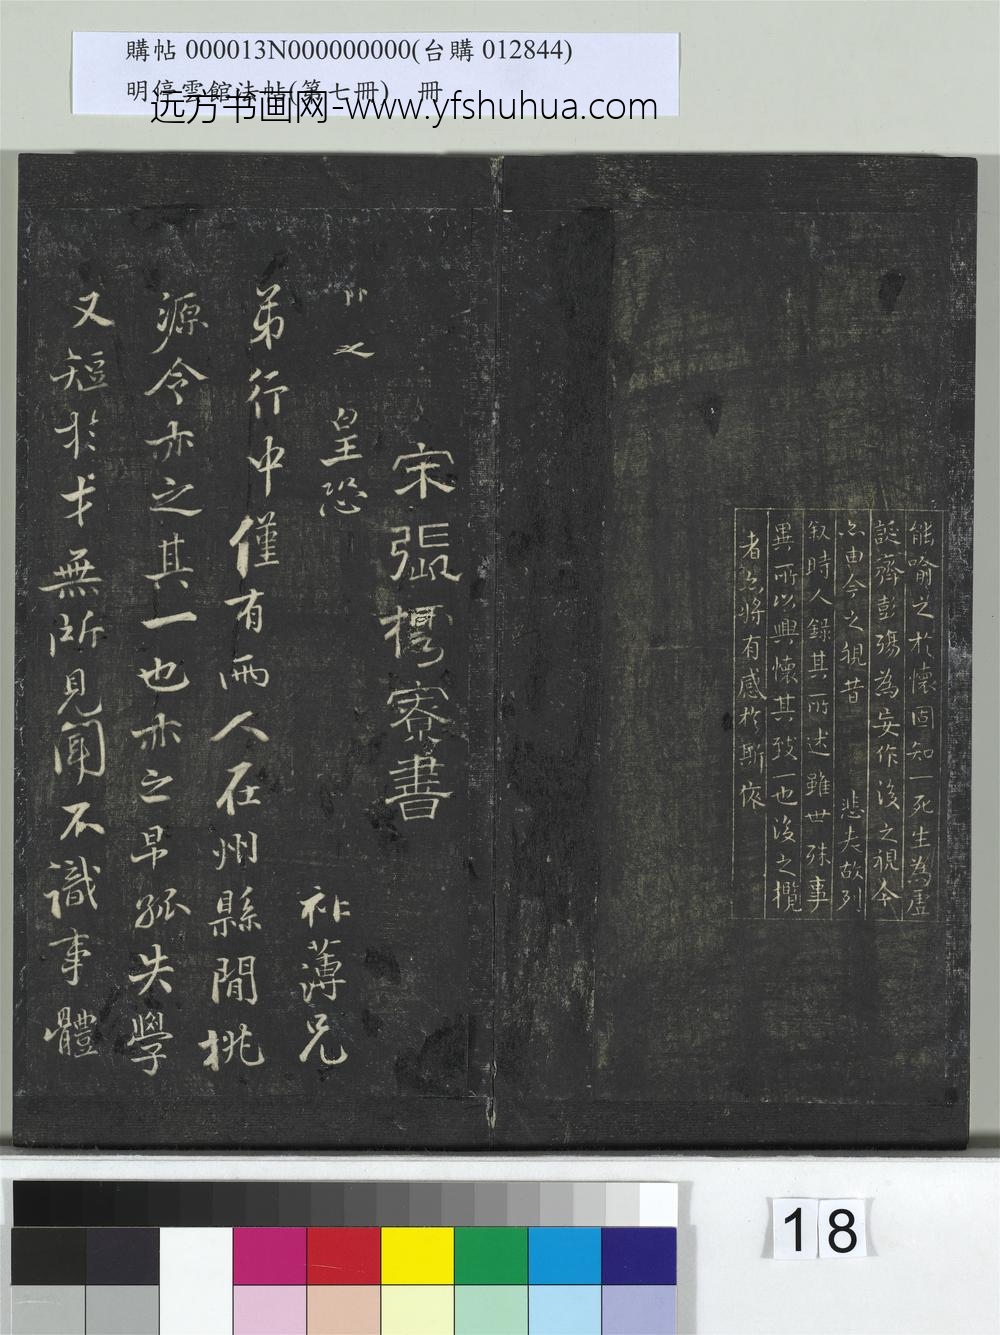 購帖 000013N000000000(台購 012844)
明停雲館法帖(第七冊) 冊
远方书画网-www.yfshuhua.com
能喻之於懷固知一死生為虛
誕齊彭殤為妄作後之視今
亦由今之視昔 悲夫故列
叙時人錄其所述雖世殊事
異所以興懷其致一也後之攬
者亦將有感於斯
宋張樗寮書
皇恐
祚薄兄
弟行中僅有兩人在州縣間桃
源令亦之其一也亦之早孤失學
又短於才無所見聞不識事體
18